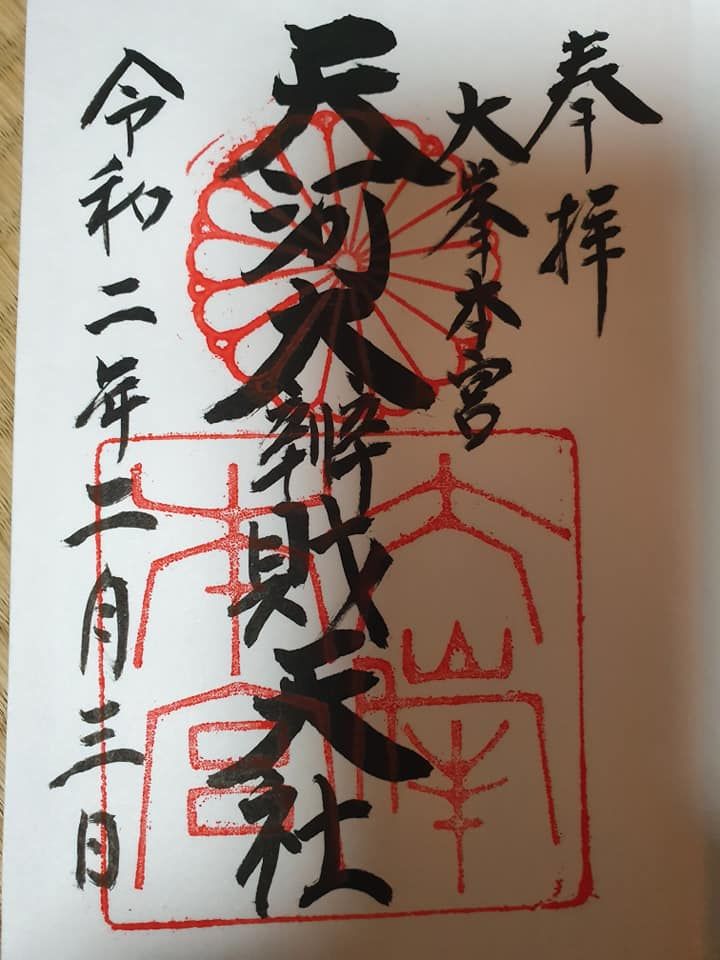 奉拝
大峯本宮
天河大辨財天社
令和二年二月三日
大峯
本宮